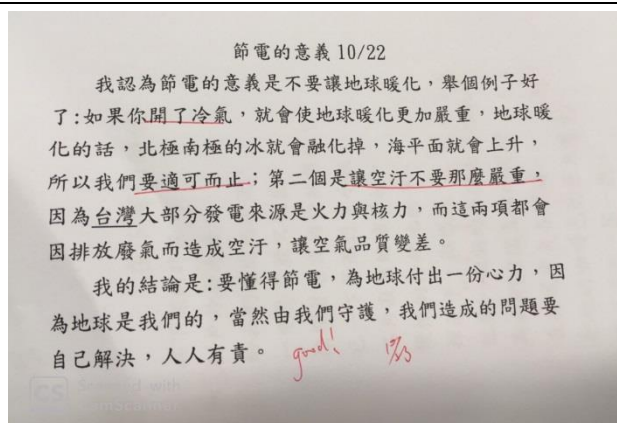 節電的意義 10/22
我認為節電的意義是不要讓地球暖化，舉個例子好
了:如果你開了冷氣，就會使地球暖化更加嚴重，地球暖
化的話，北極南極的冰就會融化掉，海平面就會上升，
所以我們要適可而止；第二個是讓空汙不要那麼嚴重，
因為台灣大部分發電來源是火力與核力，而這兩項都會
因排放廢氣而造成空汙，讓空氣品質變差。
我的結論是:要懂得節電，為地球付出一份心力，因
為地球是我們的，當然由我們守護，我們造成的問題要
自己解決，人人有責。 good! 10/23
CS Scanned with
CamScanner